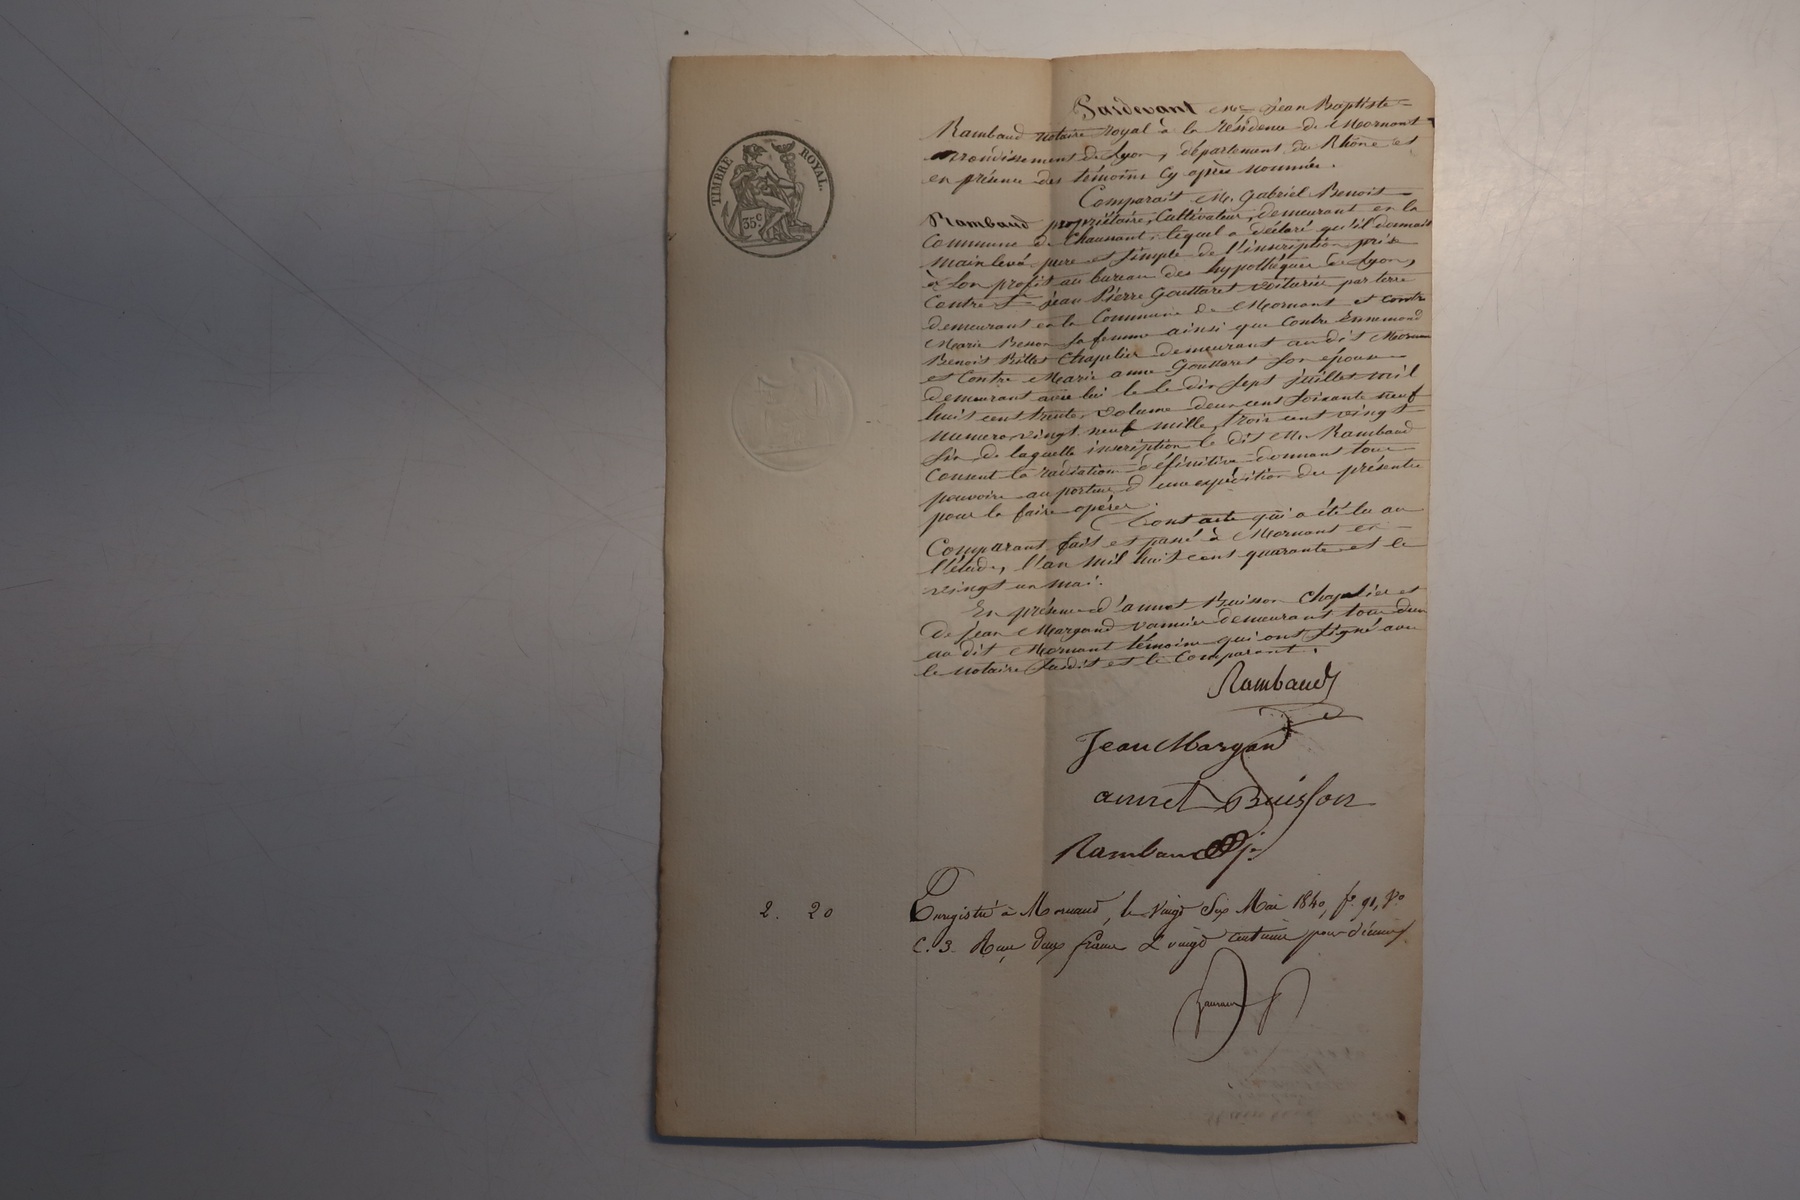 TIMBRE ROYAL.
35c
Pardevant Me jean Baptiste
Rambaud notaire royal à la résidence de Mornant
arrondissement de Lyon, département du Rhône et
en présence des témoins cy après nommés.
Comparait Mr. Gabriel Benoit
Rambaud propriétaire, Cultivateur, demeurant en la
Commune de Chaussant, lequel a déclaré qu'il donnait
mainlevé pure et simple de l'inscription prise
à son profit au bureau des hypothèques de Lyon,
Contre Sr jean Pierre Gouttaret voiturier par terre
demeurant en la Commune de Mornant et contre
Marie Besson sa femme ainsi que Contre Ennemond
Benoit Billet Chapelier demeurant au dit Mornant
et Contre Marie anne Gouttaret son épouse
demeurant avec lui le le dix sept juillet mil
huit cent trente, volume deux cent soixante neuf
numero vingt neuf mille, trois cent vingt
six de laquelle inscription le dit Mr. Rambaud
Consent la radiation définitive donnant tout
pouvoir au porteur d'une expédition des présentes
pour la faire opérer.
Dont acte qui a été lu au
Comparant fait et passé à Mornant en
l'étude, l'an mil huit cent quarante et le
vingt un mai.
En présence d'annet Buisson Chapelier et
de jean Margand vannier demeurant tous deux
au dit Mornant témoins qui ont signé avec
le notaire susdit et le Comparant.
Rambaud
Jean Margand
annet Buisson
Rambaud
2. 20
Enregistré à Mornand, le vingt Six Mai 1840, fo. 91, Vo
C. 3. Reçu deux francs & vingt centimes pour décimes